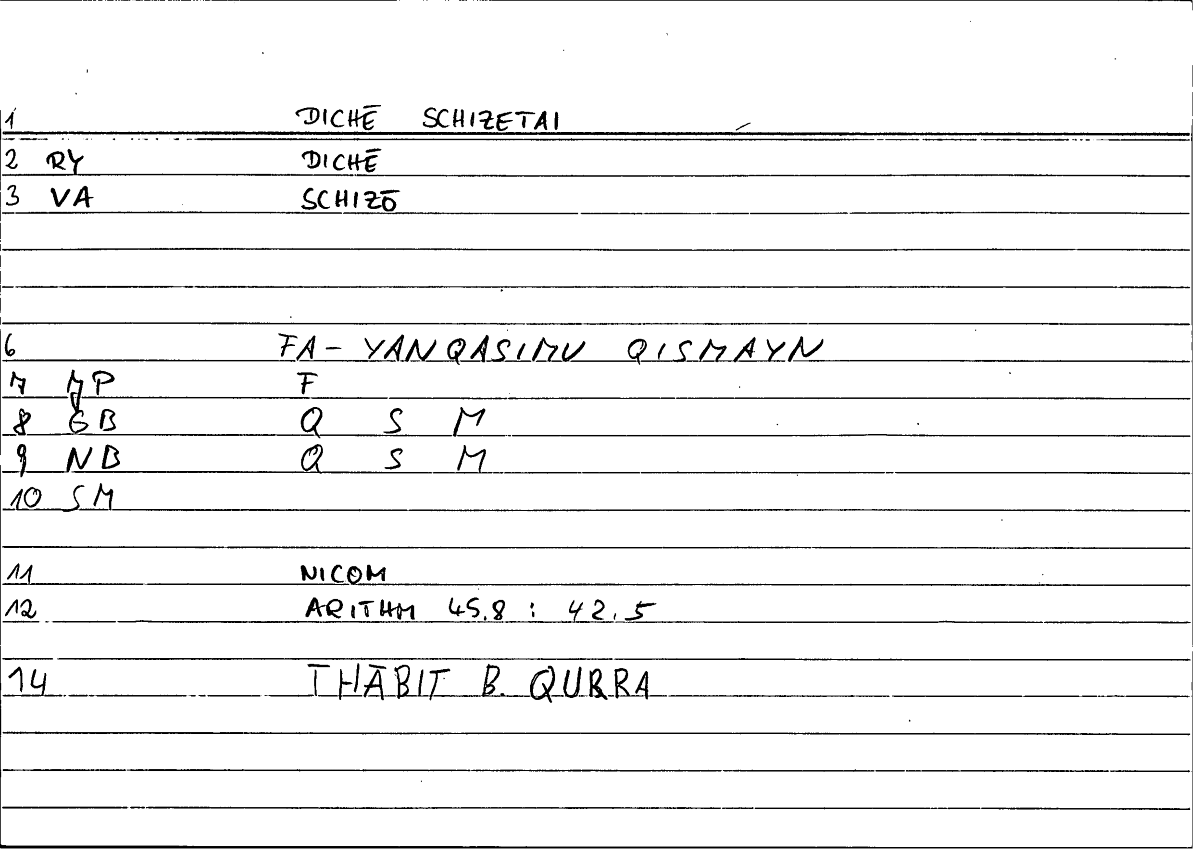 1 DICHĒ SCHIZETAI
2 RY DICHĒ
3 VA SCHIZŌ
6 FA-YANQASIMU QISMAYN
7 MP F
8 GB Q S M
9 NB Q S M
10 SM
11 NICOM
12 ARITHM 45.8 : 42.5
14 THĀBIT B. QURRA